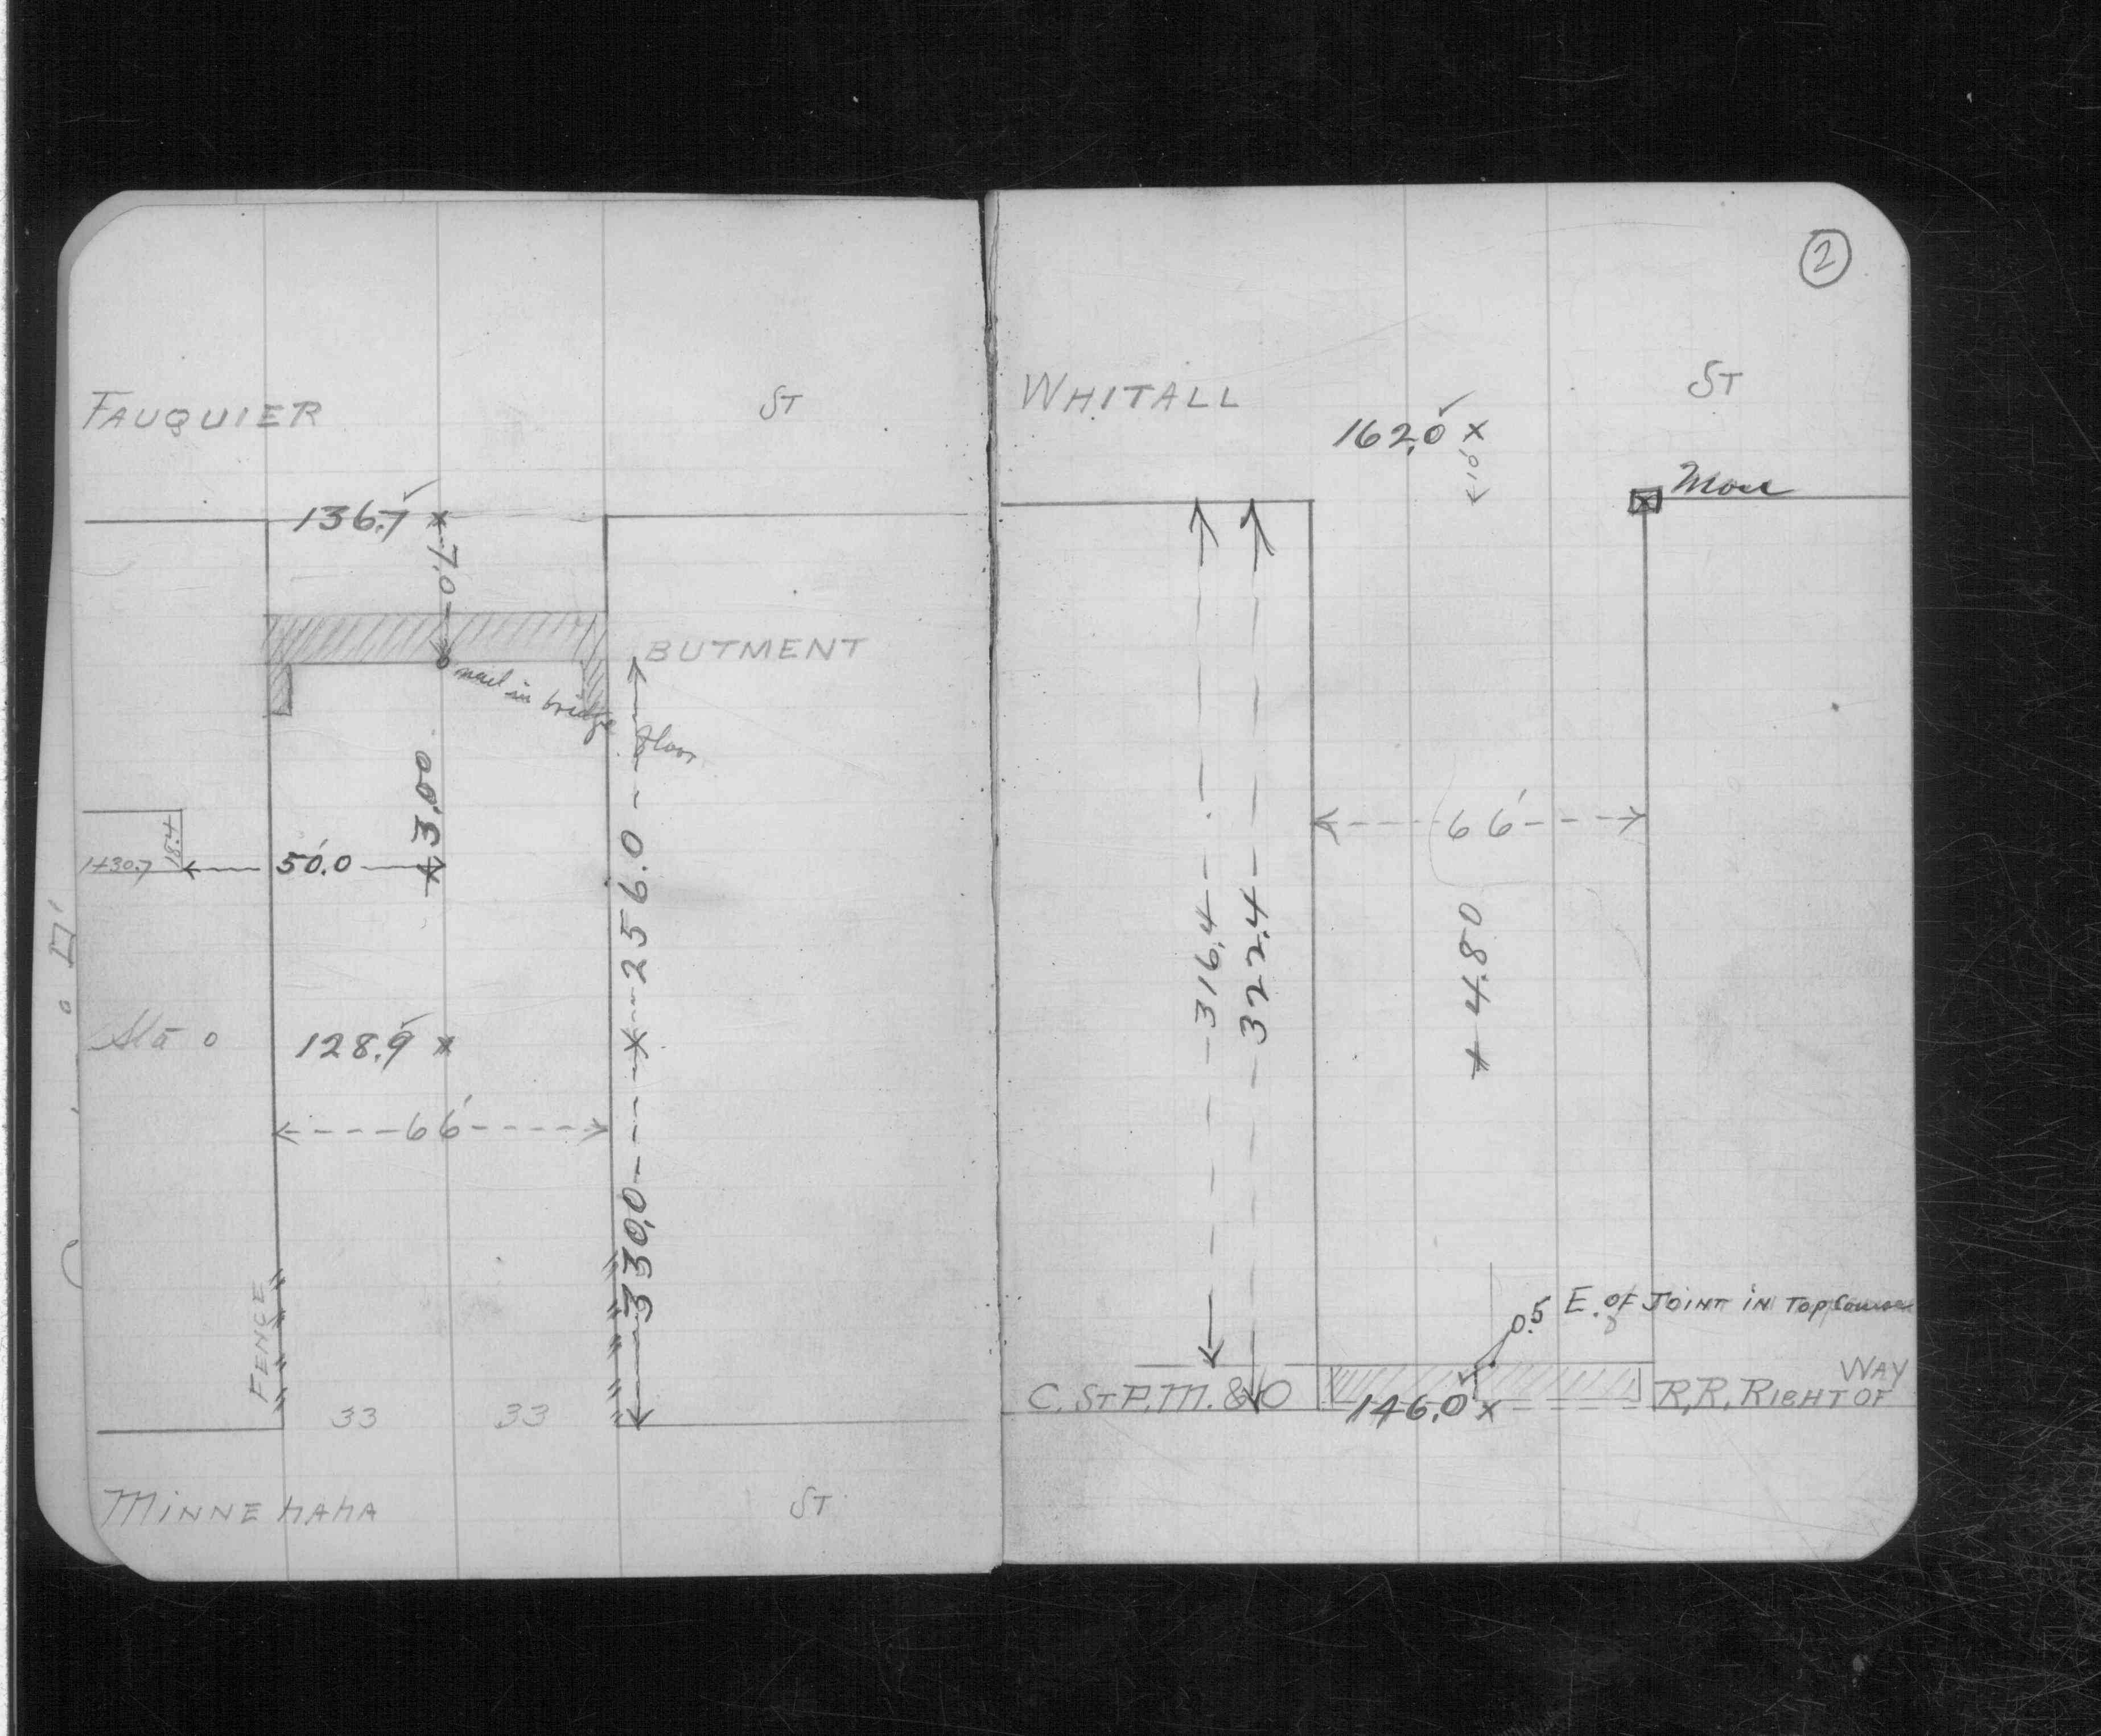 FAUQUIER ST
136.7 x
7.0
BUTMENT
nail in bridge floor
+3.00
18.4
1+30.7
50.0
256.0
Sta 0
128.9 x
66'
330.0
FENCE
33 33
MINNEHAHA ST
2
WHITALL ST
162.0 x
10'
Mon
66'
316.4
322.4
+4.80
0.5 E. of JOINT IN Top Course
C. ST P. M. & O
146.0 x
R.R. RIGHT OF WAY